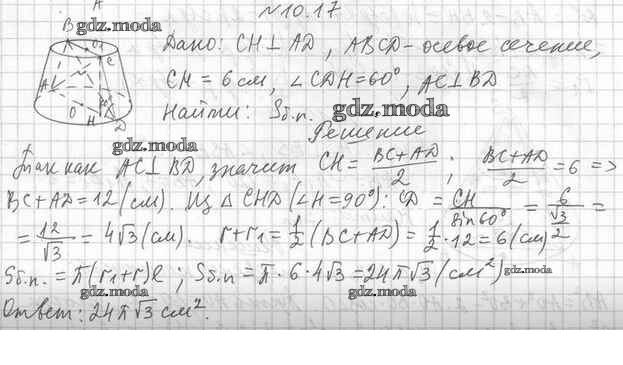 №10.17
gdz.moda
Дано: CH⊥AD, ABCD-осевое сечение,
CH = 6 см, ∠CDH=60°, AC⊥BD
Найти: Sб.п.
gdz.moda
gdz.moda
Решение
Так как AC⊥BD, значит CH = (BC+AD)/2 ; (BC+AD)/2 = 6 =>
BC+AD=12(см). Из △CHD(∠H=90°): CD = CH/sin60° = 6/(√3/2) =
= 12/√3 = 4√3(см). r+r₁=1/2(BC+AD)=1/2·12=6(см)
Sб.п. = π(r₁+r)l ; Sб.п = π·6·4√3 =24π√3(см²)
gdz.moda
gdz.moda
gdz.moda
Ответ: 24π√3 см².
B
C
A
O
H
D